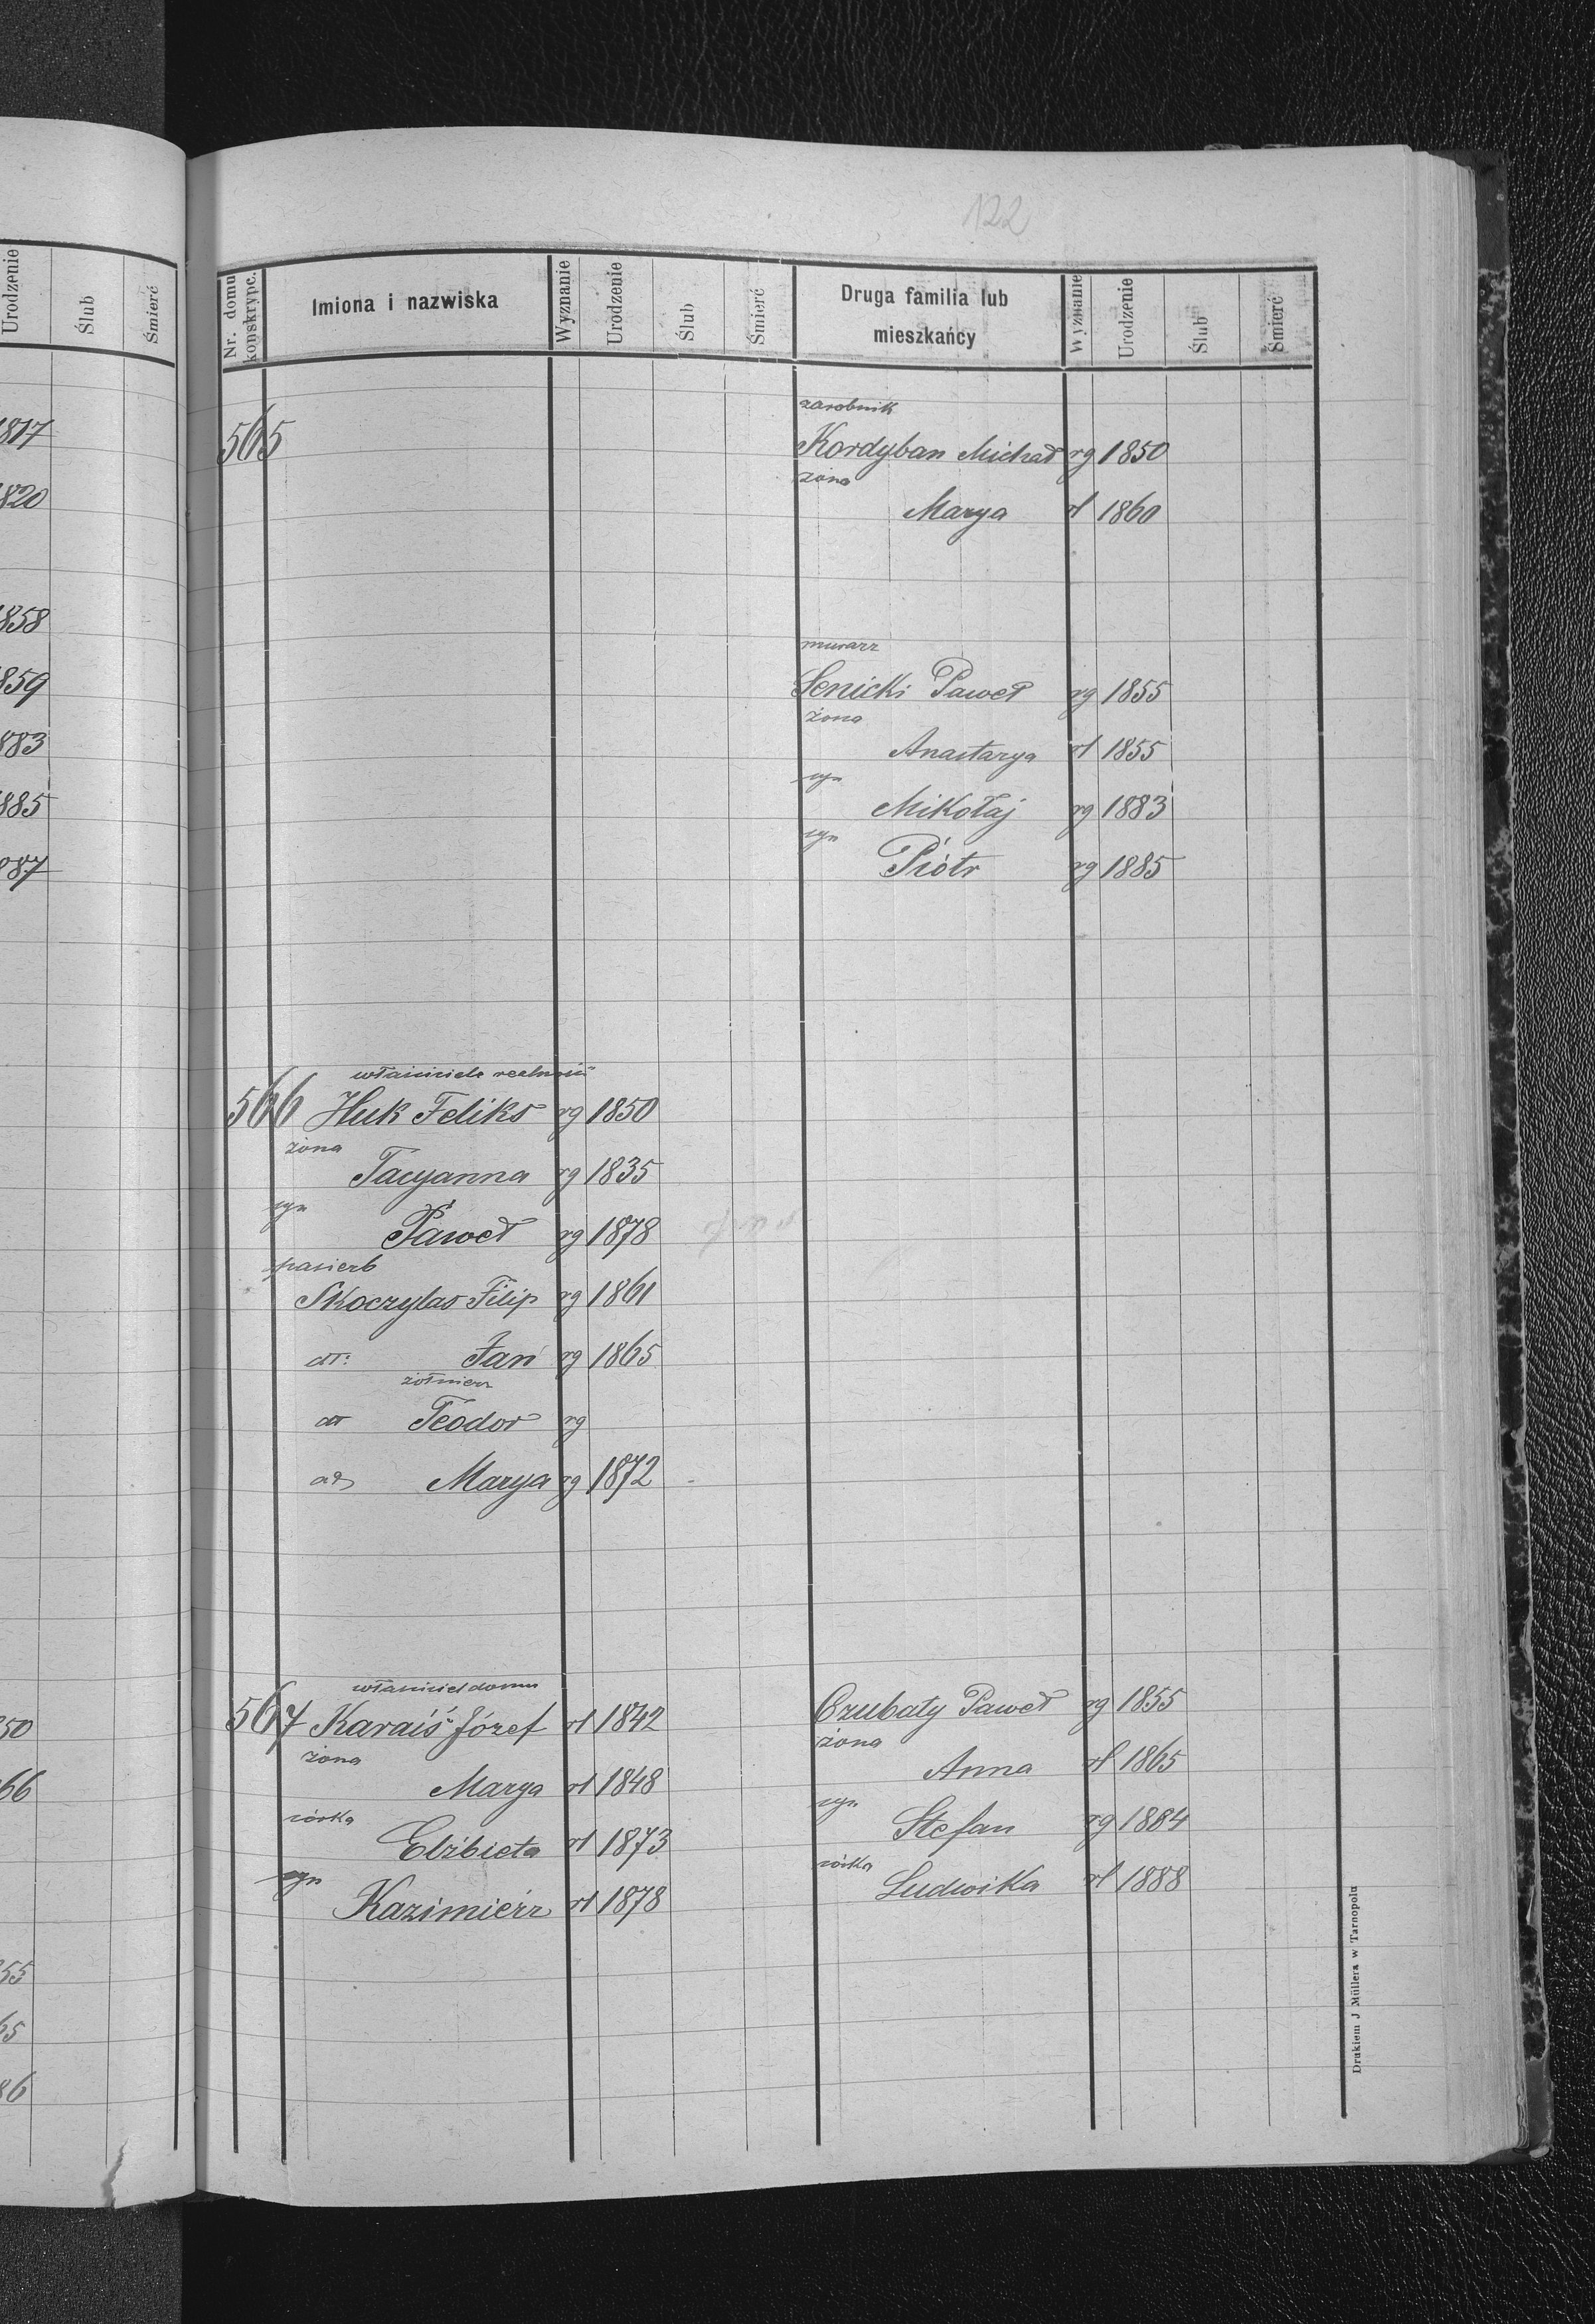 122
Urodzenie
Ślub
Śmierć
817
820
858
859
883
885
887
50
66
55
65
86
Nr. domu konskrypc.
Imiona i nazwiska
Wyznanie
Urodzenie
Ślub
Śmierć
Druga familia lub mieszkańcy
Wyznanie
Urodzenie
Ślub
Śmierć
565
zarobnik
Kordyban Michał rg 1850
żona
Marya rl 1860
murarz
Senicki Paweł rg 1855
żona
Anastazya rl 1855
syn
Mikołaj rg 1883
syn
Piótr rg 1885
właściciele realności
566 Huk Feliks rg 1850
żona
Tacyanna rg 1835
syn
Paweł rg 1878
pasierb
Skoczylas Filip rg 1861
dt: Jan rg 1865
żołnierz
dt Teodor rg
Marya rg 1872
właściciel domu
567 Karaiś Józef rl 1842
żona
Marya rl 1848
córka
Elżbieta rl 1873
syn
Kazimierz rl 1878
Czubaty Paweł rg 1855
żona
Anna rl 1865
syn
Stefan rg 1884
córka
Ludwika rl 1888
Drukiem J Müllera w Tarnopolu